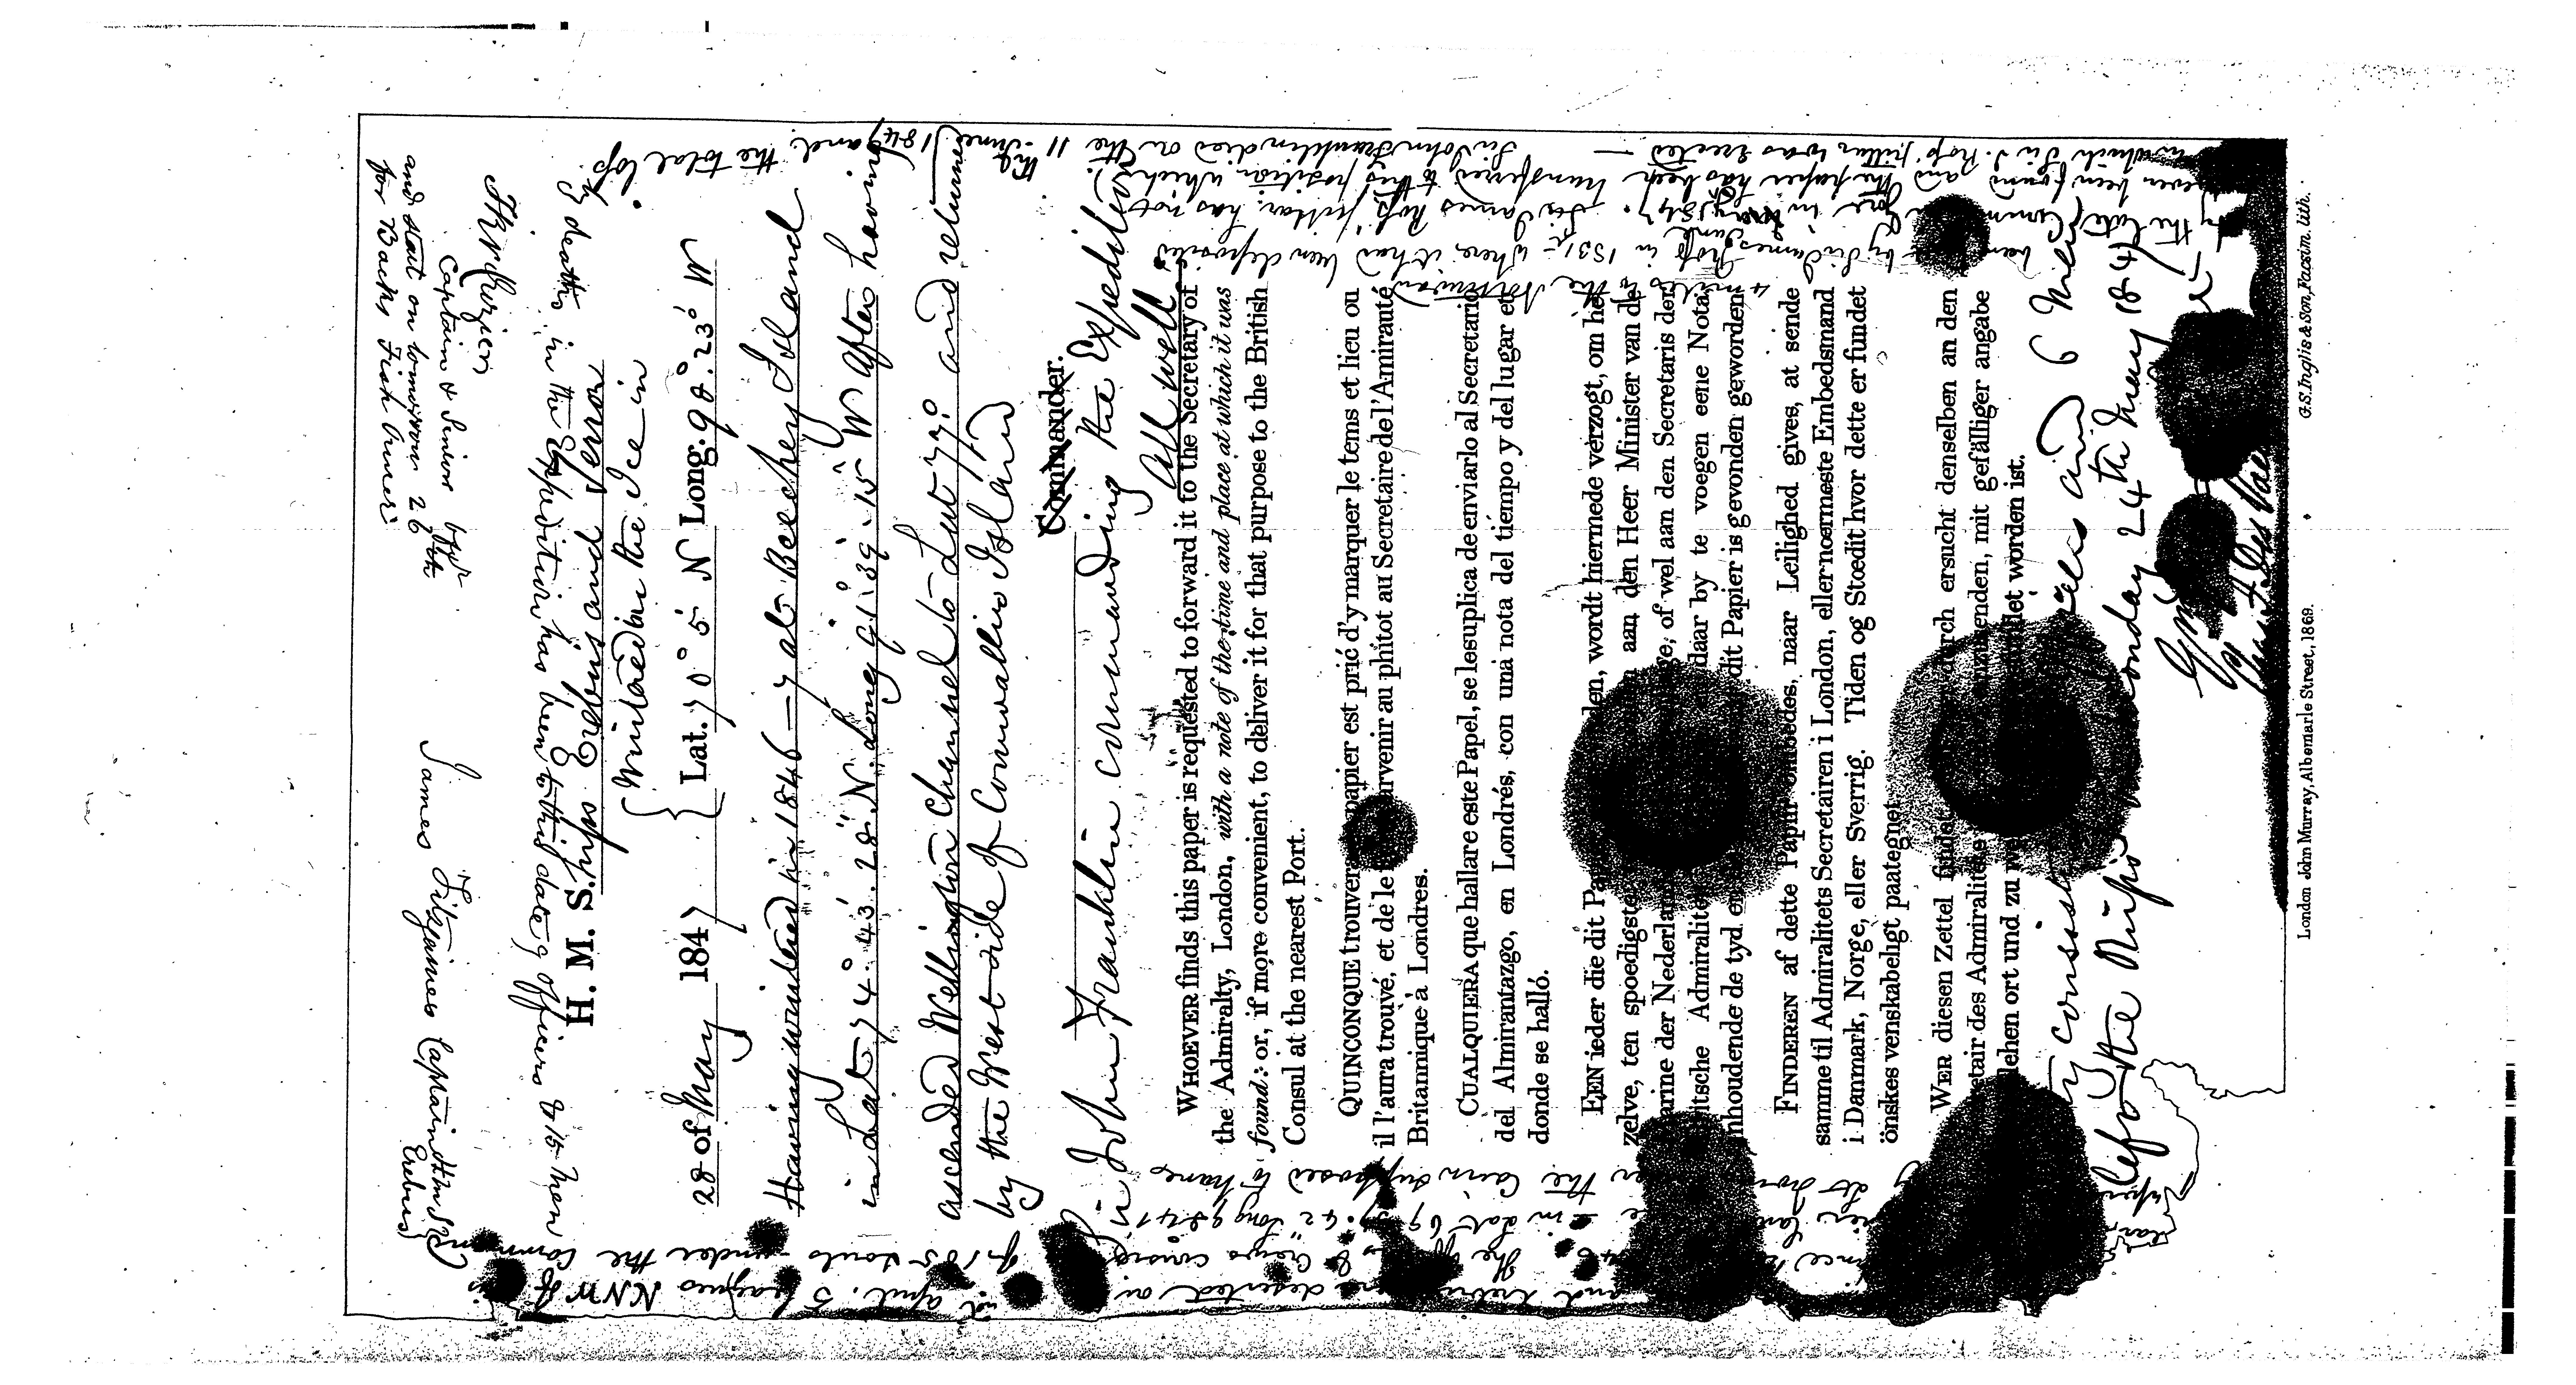 H. M. S. hips Erebus and Terror
Wintered in the Ice in
28 of May 1847 { Lat. 70° 5' N Long. 98°. 23' W
Having wintered in 1846–7 at Beechey Island
in Lat 74°. 43'. 28" N. Long 91°. 39'. 15" W After having
ascended Wellington Channel to Lat 77° and returned
by the West side of Cornwallis Island
Commander.
Sir John Franklin commanding the Expedition
All well
WHOEVER finds this paper is requested to forward it to the Secretary of
the Admiralty, London, with a note of the time and place at which it was
found: or, if more convenient, to deliver it for that purpose to the British
Consul at the nearest Port.
QUINCONQUE trouvera papier est prié d'y marquer le tems et lieu ou
il l'aura trouvé, et de le parvenir au plutot au Secretaire de l'Amirauté
Britannique à Londres.
CUALQUIERA que hallare este Papel, se le suplica de enviarlo al Secretario
del Almirantazgo, en Londrés, con una nota del tiempo y del lugar en
donde se halló.
EEN ieder die dit Pa den, wordt hiermede verzogt, om het
zelve, ten spoedigste aan den Heer Minister van de
arine der Nederlan of wel aan den Secretaris der
itsche Admiralite daar by te voegen eene Nota
nhoudende de tyd e dit Papier is gevonden geworden
FINDEREN af dette Papir ombedes, naar Leilighed gives, at sende
samme til Admiralitets Secretairen i London, eller nœrmeste Embedsmand
i Danmark, Norge, eller Sverrig. Tiden og Stœdit hvor dette er fundet
önskes venskabeligt paategnet
WER diesen Zettel findet rch ersucht denselben an den
etair des Admiralitets nzusenden, mit gefälliger angabe
lchen ort und zu we det worden ist.
ty consist cers and 6 Men
left the Ships Monday 24th May 1847
Gm
Chas F Des Vœ
and Erebus were deserted on
the 22nd April. 5 leagues NNW of this
ince 12 46 The Officers & Crews consi
of 105 souls under the command
in Lat 69° 37' 42" Long 98° 41'
er the Cairn supposed to have
been by Sir James Ross in 1831 – where it had been deposited
4 miles to the Northward
by the late Commander Gore in June 1847.
Sir James Ross' pillar has not
ever been found and the paper has been transferred to this position which
in which Sir J. Ross' pillar was erected —
Sir John Franklin died on the 11 June 1847 and the total loss
by deaths in the Expedition has been to this date 9 officers & 15 Men
James Fitzjames Captain HMS
Erebus
F R M Crozier
Captain & Senior Offr
and start on tomorrow 26th
for Backs Fish River
London John Murray, Albemarle Street, 1869.
G.S. Inglis & Son, Facsim. lith.